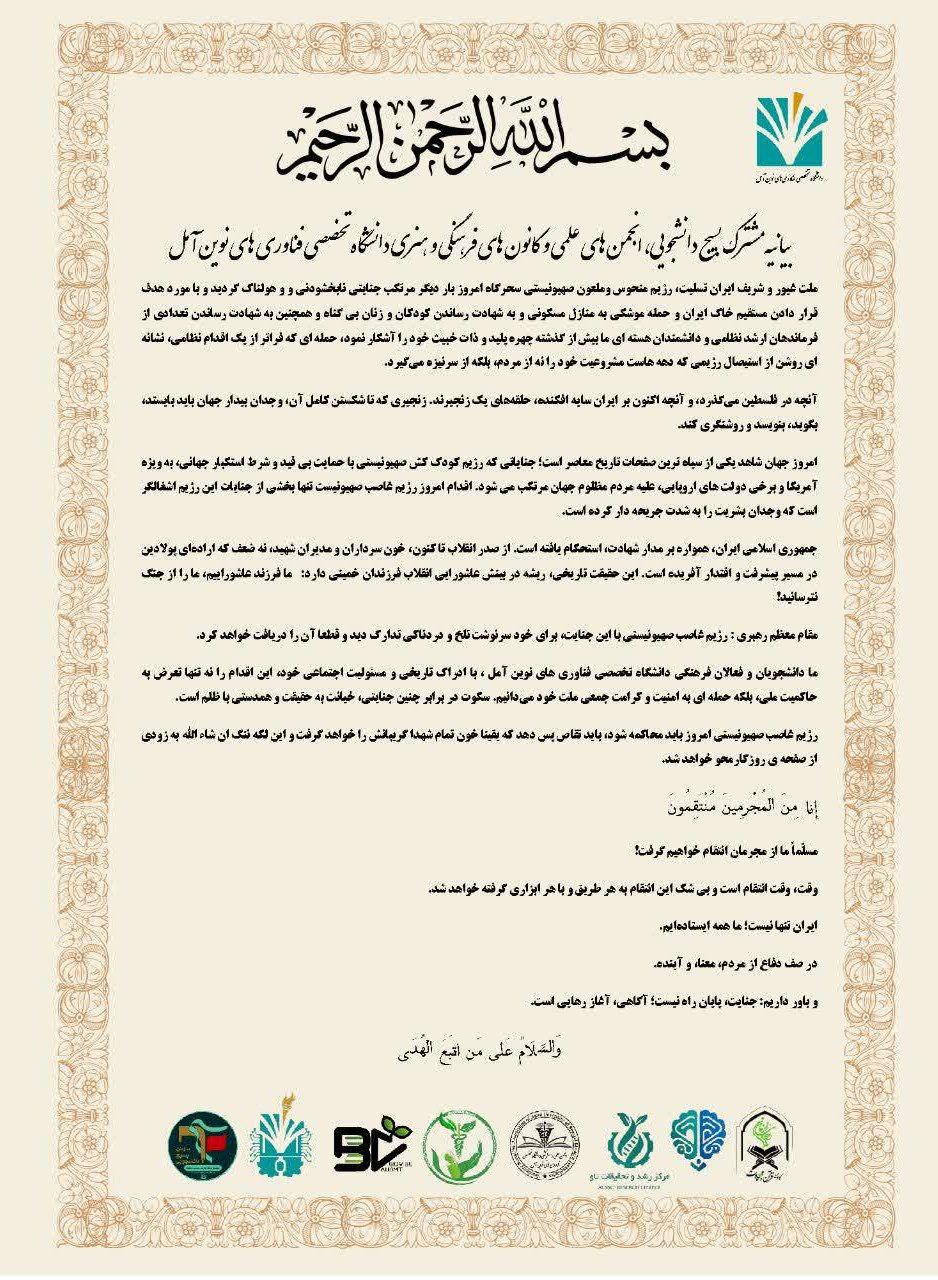 بسم الله الرحمن الرحیم
دانشگاه تخصصی فناوری‌های نوین آمل
بیانیه مشترک بسیج دانشجویی، انجمن های علمی و کانون های فرهنگی و هنری دانشگاه تخصصی فناوری های نوین آمل
ملت غیور و شریف ایران تسلیت، رژیم منحوس وملعون صهیونیستی سحرگاه امروز بار دیگر مرتکب جنایتی نابخشودنی و و هولناک گردید و با مورد هدف
قرار دادن مستقیم خاک ایران و حمله موشکی به منازل مسکونی و به شهادت رساندن کودکان و زنان بی گناه و همچنین به شهادت رساندن تعدادی از
فرماندهان ارشد نظامی و دانشمندان هسته ای ما بیش از گذشته چهره پلید و ذات خبیث خود را آشکار نمود، حمله ای که فراتر از یک اقدام نظامی، نشانه
ای روشن از استیصال رژیمی که دهه هاست مشروعیت خود را نه از مردم، بلکه از سرنیزه می‌گیرد.
آنچه در فلسطین می‌گذرد، و آنچه اکنون بر ایران سایه افکنده، حلقه‌های یک زنجیرند. زنجیری که تا شکستن کامل آن، وجدان بیدار جهان باید بایستد،
بگوید، بنویسد و روشنگری کند.
امروز جهان شاهد یکی از سیاه ترین صفحات تاریخ معاصر است؛ جنایاتی که رژیم کودک کش صهیونیستی با حمایت بی قید و شرط استکبار جهانی، به ویژه
آمریکا و برخی دولت های اروپایی، علیه مردم مظلوم جهان مرتکب می شود. اقدام امروز رژیم غاصب صهیونیست تنها بخشی از جنایات این رژیم اشغالگر
است که وجدان بشریت را به شدت جریحه دار کرده است.
جمهوری اسلامی ایران، همواره بر مدار شهادت، استحکام یافته است. از صدر انقلاب تا کنون، خون سرداران و مدیران شهید، نه ضعف که اراده‌ای پولادین
در مسیر پیشرفت و اقتدار آفریده است. این حقیقت تاریخی، ریشه در بینش عاشورایی انقلاب فرزندان خمینی دارد: ما فرزند عاشوراییم، ما را از جنگ
نترسانید!
مقام معظم رهبری : رژیم غاصب صهیونیستی با این جنایت، برای خود سرنوشت تلخ و دردناکی تدارک دید و قطعا آن را دریافت خواهد کرد.
ما دانشجویان و فعالان فرهنگی دانشگاه تخصصی فناوری های نوین آمل ، با ادراک تاریخی و مسئولیت اجتماعی خود، این اقدام را نه تنها تعرض به
حاکمیت ملی، بلکه حمله ای به امنیت و کرامت جمعی ملت خود می‌دانیم. سکوت در برابر چنین جنایتی، خیانت به حقیقت و همدستی با ظلم است.
رژیم غاصب صهیونیستی امروز باید محاکمه شود، باید تقاص پس دهد که یقینا خون تمام شهدا گریبانش را خواهد گرفت و این لکه ننگ ان شاء الله به زودی
از صفحه ی روزگار محو خواهد شد.
إنا مِنَ المُجْرِمینَ مُنْتَقِمُونَ
مسلّماً ما از مجرمان انتقام خواهیم گرفت!
وقت، وقت انتقام است و بی شک این انتقام به هر طریق و با هر ابزاری گرفته خواهد شد.
ایران تنها نیست؛ ما همه ایستاده‌ایم.
در صف دفاع از مردم، معنا، و آینده.
و باور داریم: جنایت، پایان راه نیست؛ آگاهی، آغاز رهایی است.
وَالسَّلامُ عَلی مَن اتبَعَ الهُدَی
مرکز رشد و تحقیقات ناو